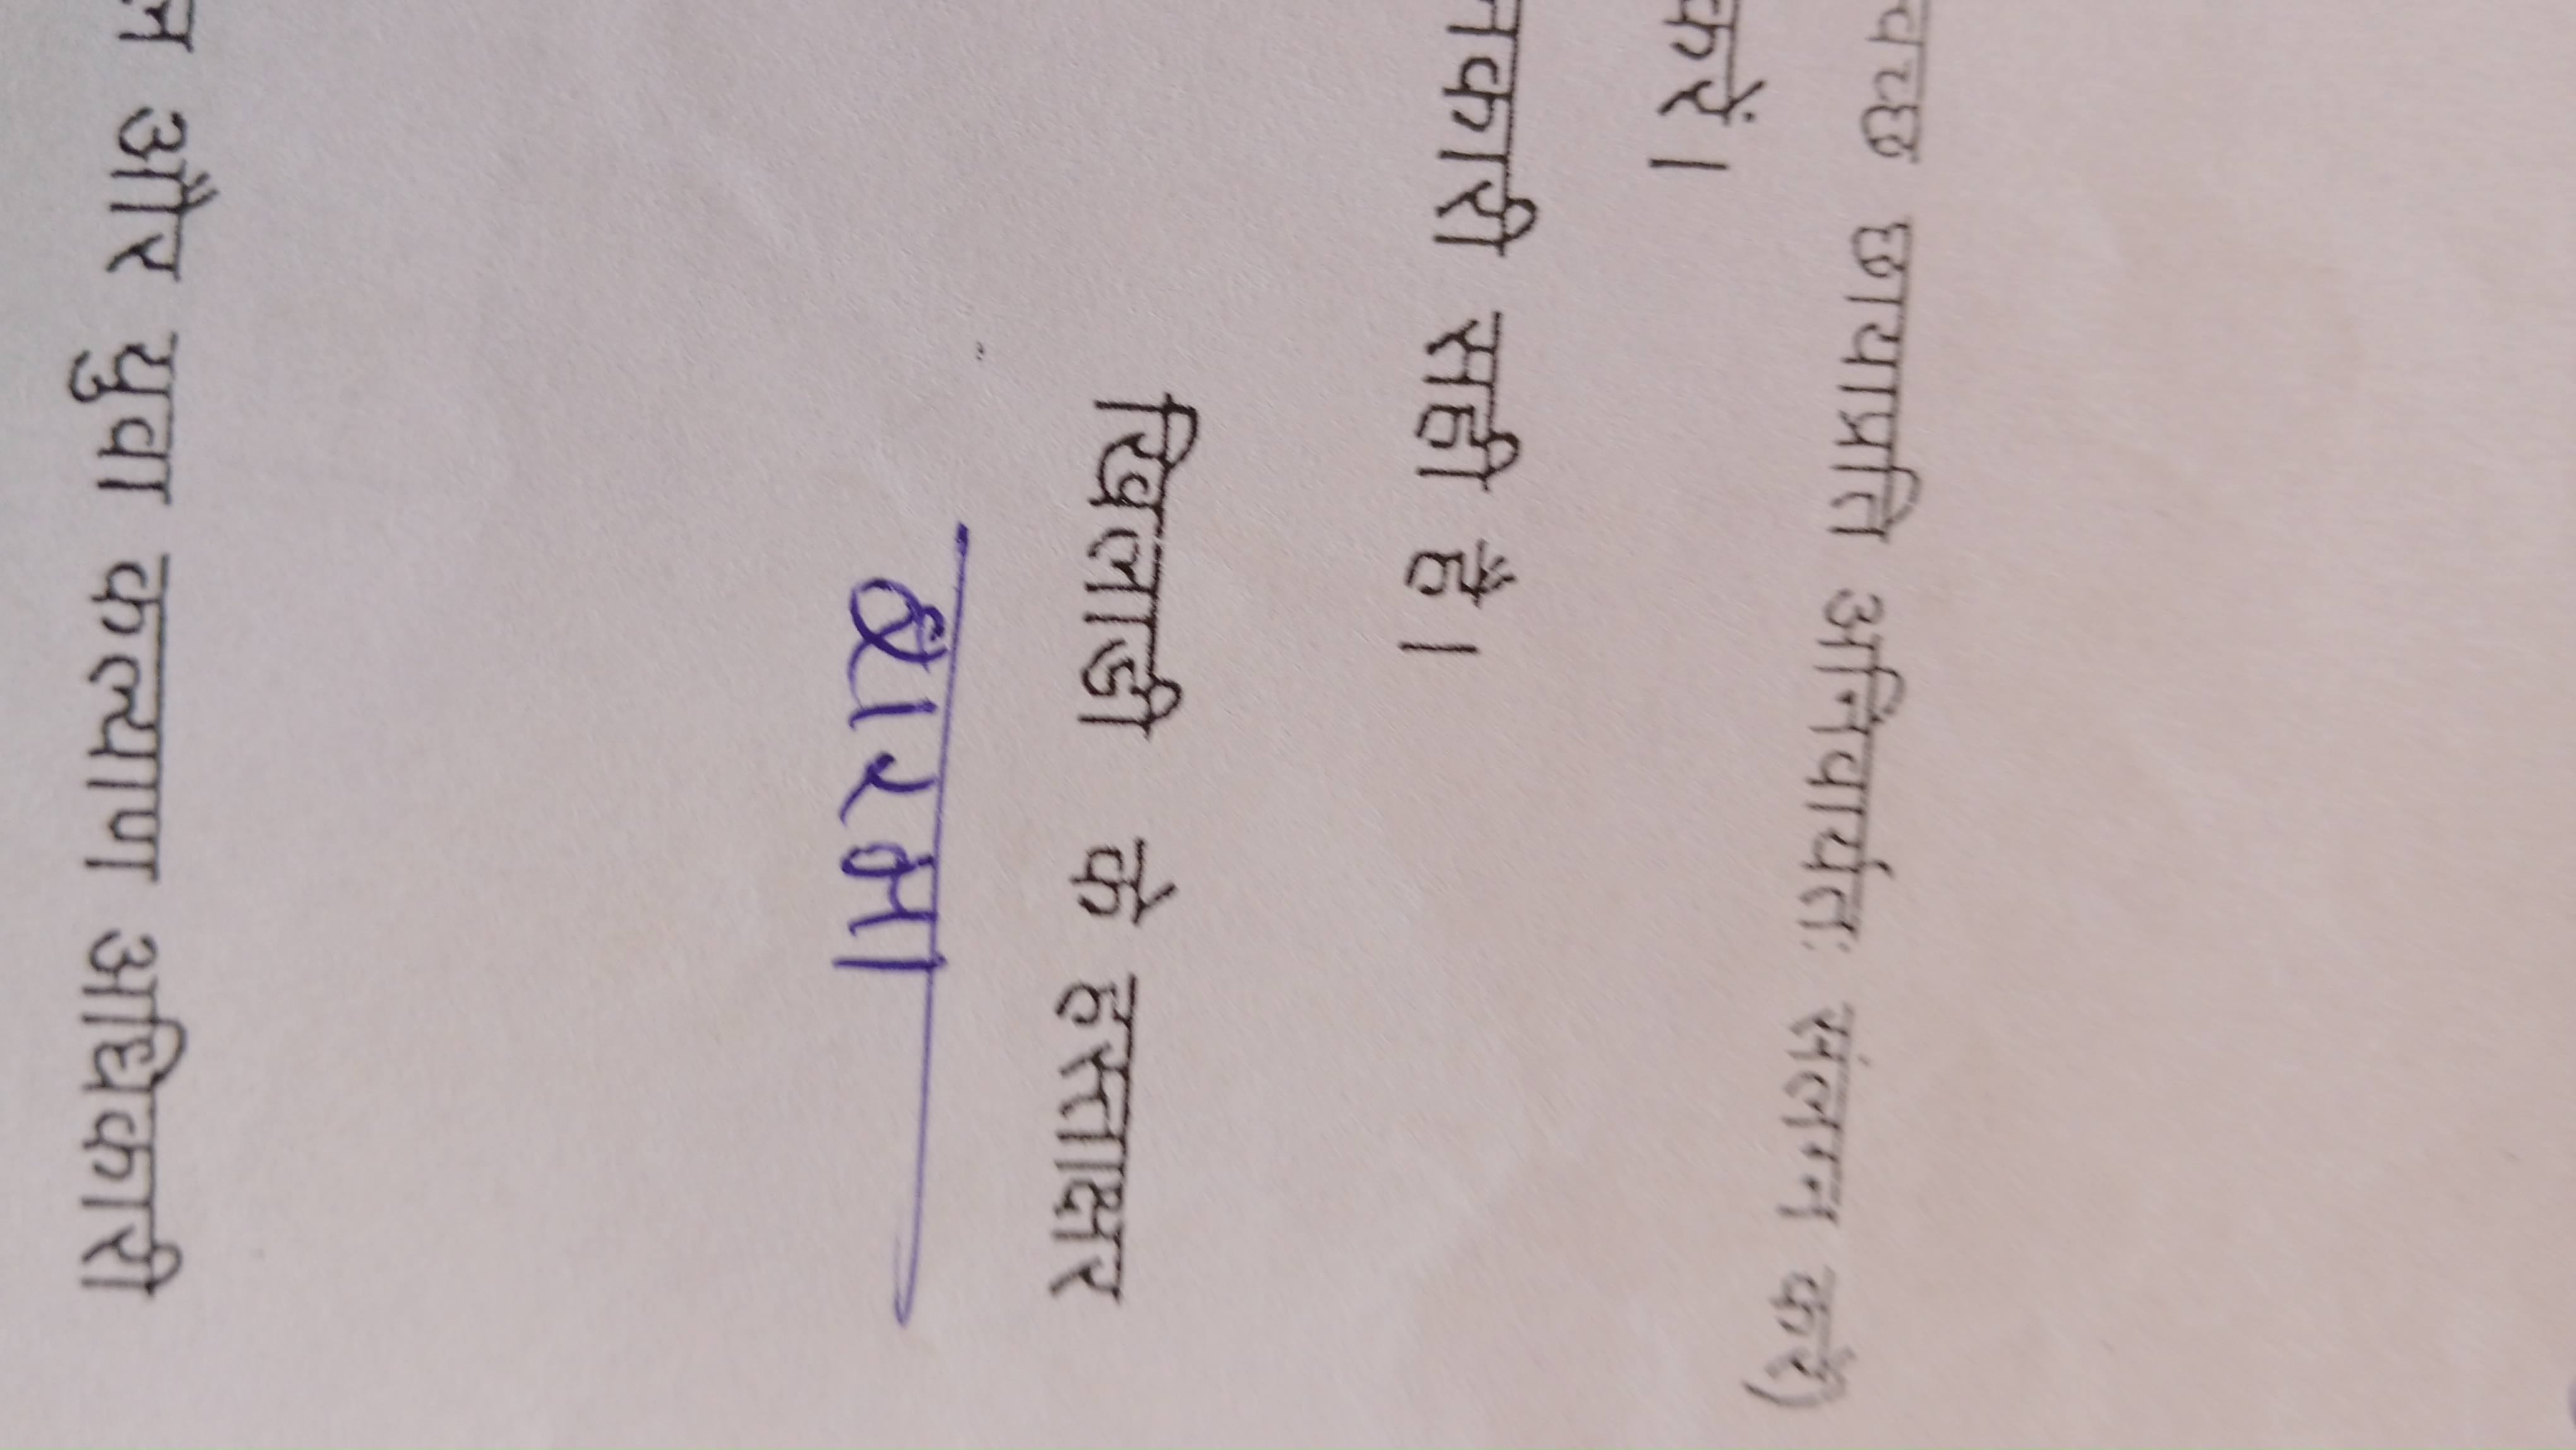 वच्छ छायाप्रति अनिवार्यतः संलग्न करें)
करें।
नकारी सही है।
खिलाड़ी के हस्ताक्षर
ल और युवा कल्याण अधिकारी